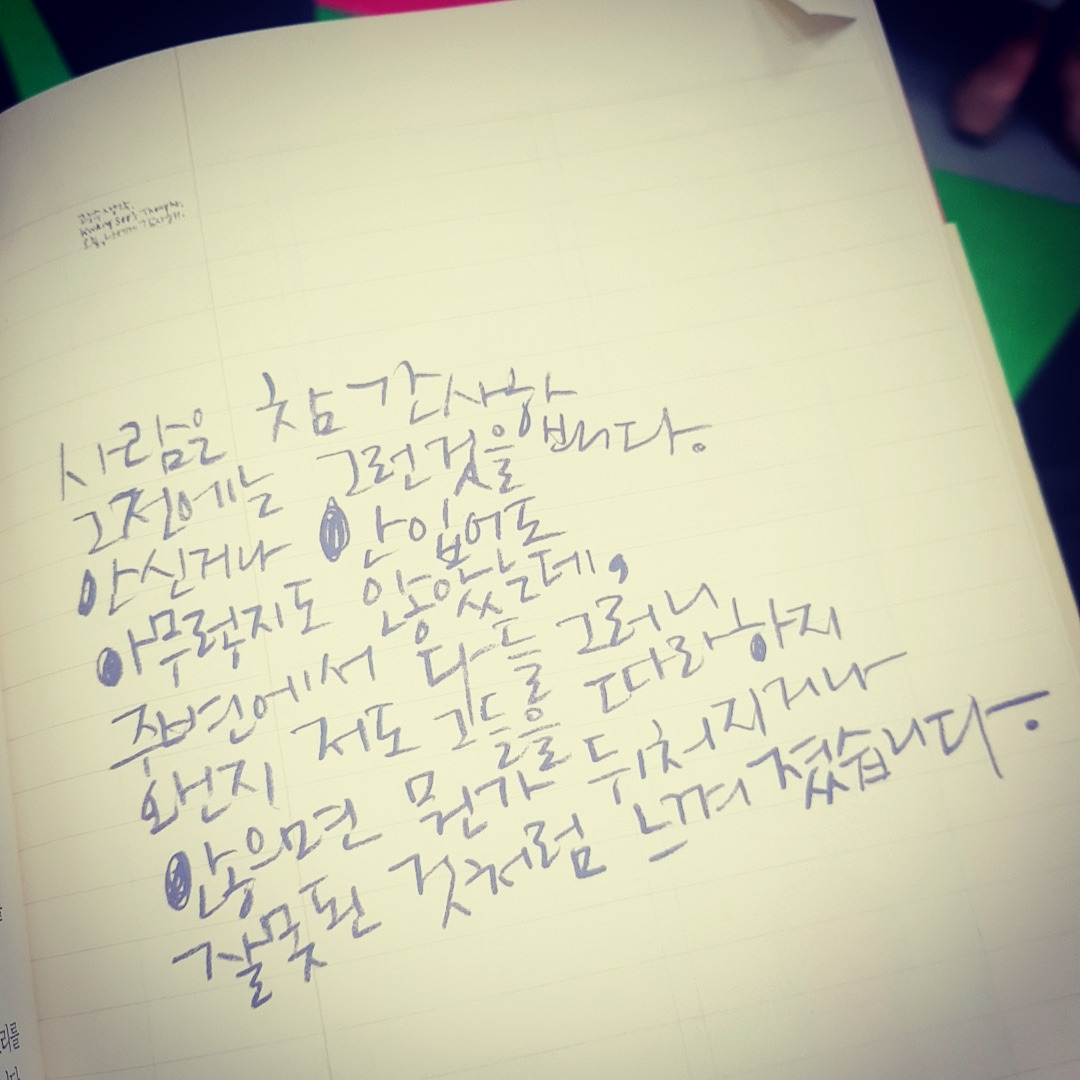 광수생각.
Kwang Soo's Thoughts.
사람은 참 간사합니다.
그전에는 그런것을
안신거나 안입어도
아무렇지도 않았는데,
주변에서 다들 그러니
왠지 저도 그들을 따라하지
않으면 뭔가 뒤처지거나
잘못된 것처럼 느껴졌습니다.
리를